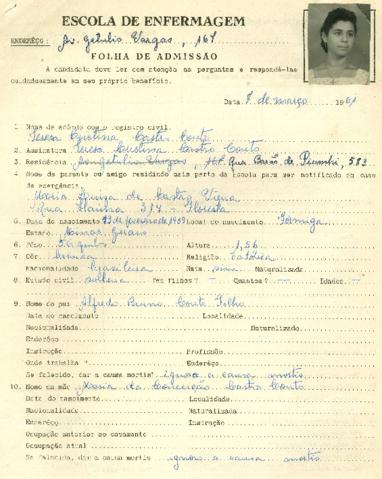 ESCOLA DE ENFERMAGEM
ENDERÊÇO: Av. Getulio Vargas, 167
FOLHA DE ADMISSÃO
A candidata deve ler com atenção as perguntas e respondê-las
cuidadosamente em seu próprio benefício.
Data 7 de março 1961
1. Nome de acôrdo com o registro civil
Teresa Cristina Castro Conto
2. Assinatura Teresa Cristina Castro Conto
3. Residência Av. Getulio Vargas, 167 Rua Barão de Piumhi, 583
4. Nome de parente ou amigo residindo mais perto da escola para ser notificado em caso
de emergência
Maria Luiza de Castro Viana
Itaúna 317 - Floresta
5. Data do nascimento 23 fevereiro Local do nascimento Formiga
Estado Minas Gerais
6. Pêso Altura 1,56
7. Côr morena Religião católica
Nacionalidade brasileira Nata sim Naturalizada
8. Estado civil solteira Tem filhos? - Quantos? - Idades -
9. Nome do pai Alfredo Bruno Conto Filho
Data do nascimento Localidade
Nacionalidade Naturalizado
Enderêço
Instrução Profissão
Onde trabalha? Enderêço
Se falecido, dar a causa mortis ignoro a causa mortis
10. Nome da mãe Maria da Conceição Castro Conto
Data do nascimento Localidade
Nacionalidade Naturalizada
Enderêço Instrução
Ocupação anterior ao casamento
Ocupação atual
Se falecida, dar a causa mortis ignoro a causa mortis